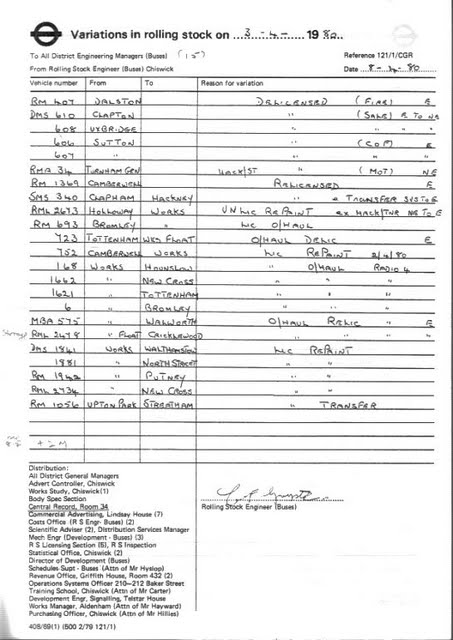 Variations in rolling stock on 3 - 4 - 1980.
To All District Engineering Managers (Buses) (15) Reference 121/1/CGR
From Rolling Stock Engineer (Buses) Chiswick Date 8-4-80
Vehicle number From To Reason for variation
RM 407 DALSTON DELICENSED (FIRE) E
DMS 610 CLAPTON " (SALE) E TO NE
608 UXBRIDGE " " "
606 SUTTON " (COF) E
607 " " " "
RMA 34 TURNHAM GEN UNLIC/ST (MOT) NE
RM 1369 CAMBERWELL RELICENSED E
SMS 340 CLAPHAM HACKNEY " & TRANSFER SYS TO E
RML 2673 HOLLOWAY WORKS UNLIC REPAINT ex HACK/TNR NE TO E
RM 693 BROMLEY " LIC O/HAUL
723 TOTTENHAM WKS FLOAT O/HAUL DELIC E
752 CAMBERWELL WORKS LIC REPAINT 2/4/80
168 WORKS HOUNSLOW " O/HAUL RADIO 4
1662 " NEW CROSS " "
1621 " TOTTENHAM " "
6 " BROMLEY " "
MBA 575 " WALWORTH O/HAUL RELIC " E
RML 2478 " FLOAT CRICKLEWOOD " " "
DMS 1841 WORKS WALTHAMSTOW LIC REPAINT
1881 " NORTH STREET " "
RM 1942 " PUTNEY " "
RML 2734 " NEW CROSS " "
RM 1056 UPTON PARK STREATHAM " TRANSFER
Distribution:
All District General Managers
Advert Controller, Chiswick
Works Study, Chiswick (1)
Body Spec Section
Central Record, Room 34
Commercial Advertising, Lindsay House (7)
Costs Office (R S Engr- Buses) (2)
Scientific Adviser (2), Distribution Services Manager
Mech Engr (Development - Buses) (3)
R S Licensing Section (5), R S Inspection
Statistical Office, Chiswick (2)
Director of Development (Buses)
Schedules Supt - Buses (Attn of Mr Hyslop)
Revenue Office, Griffith House, Room 432 (2)
Operations Systems Officer 210-212 Baker Street
Training School, Chiswick (Attn of Mr Carter)
Development Engr, Signalling, Telstar House
Works Manager, Aldenham (Attn of Mr Hayward)
Purchasing Officer, Chiswick (Attn of Mr Hillies)
Rolling Stock Engineer (Buses)
408/69(1) (500 2/79 121/1)